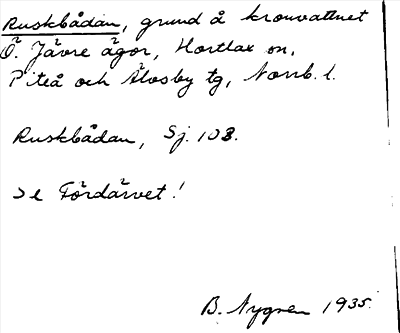 Ruskbådan, grund å kronvattnet
Ö. Jävre ägor, Hortlax sn,
Piteå och Älvsby tg, Norrb. l.
Ruskbådan, Sj. 108.
Se Fördärvet!
B. Nygren 1935.